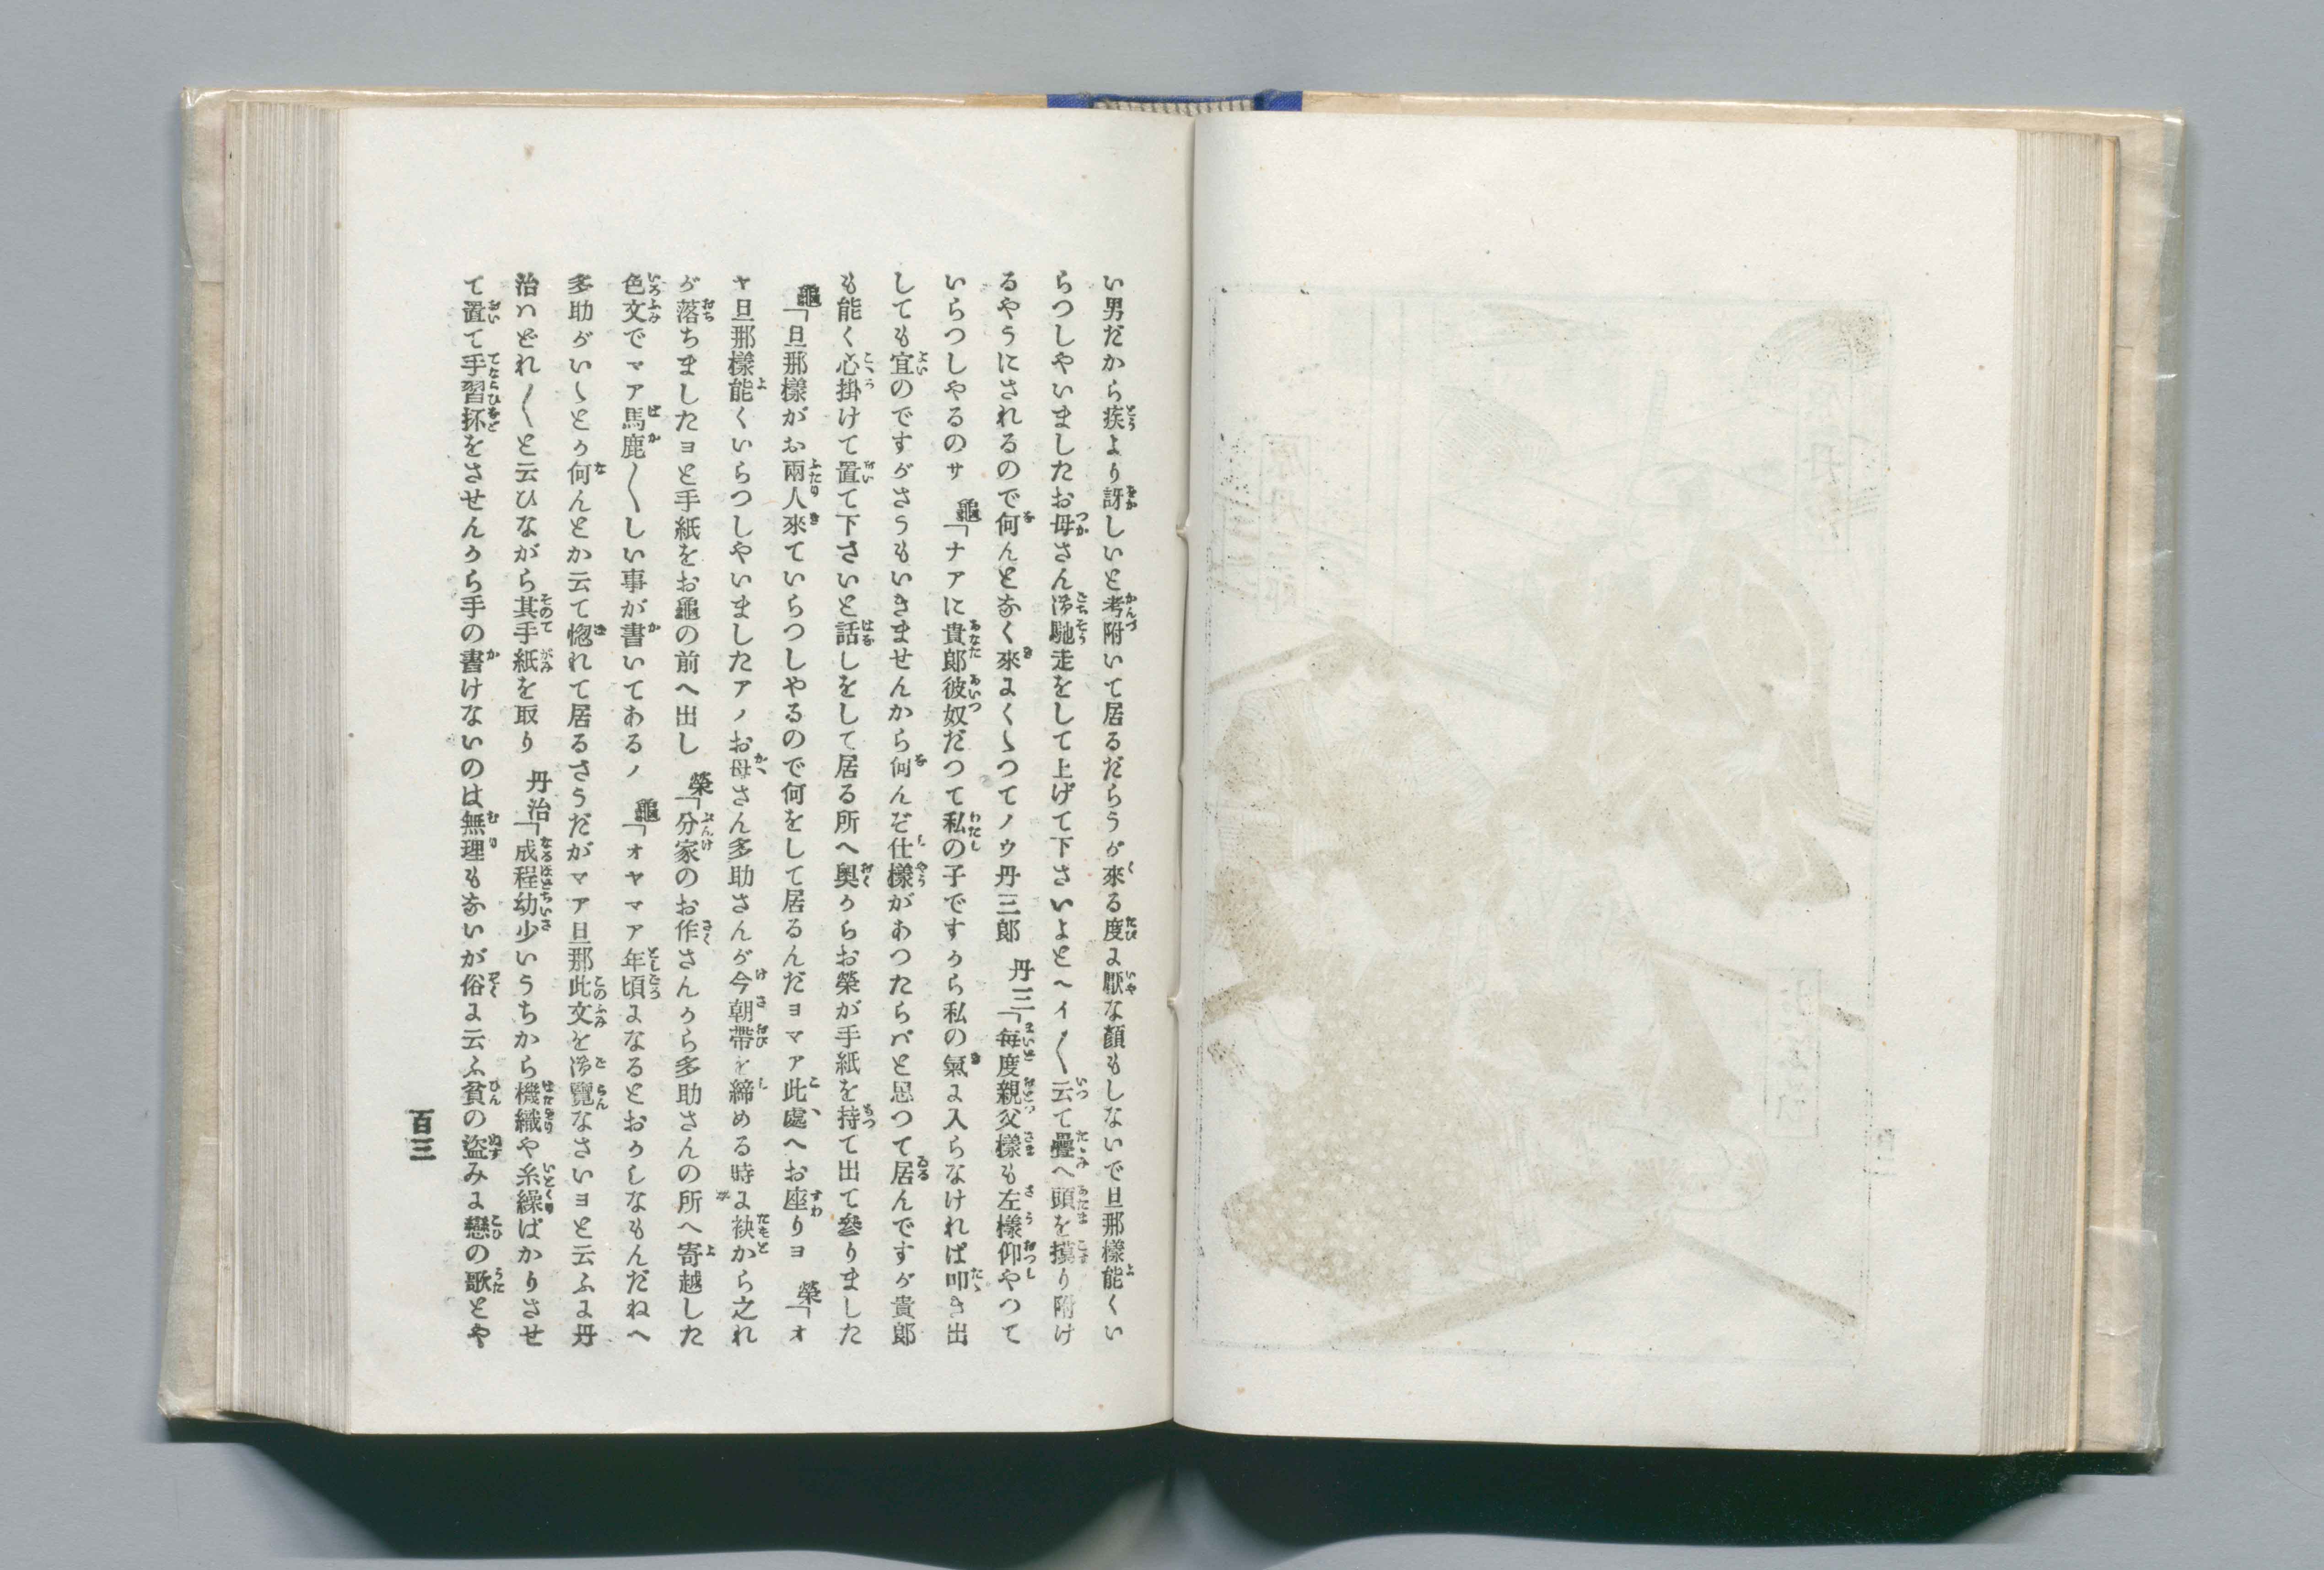 い男だから疾より訝しいと考附いて居るだらうが來る度に厭な顏もしないで旦那樣能くい
らつしやいましたお母さん御馳走をして上げて下さいよとヘイ〳〵云て疊へ頭を摸り附け
るやうにされるので何んとなく來にくゝつてノウ丹三郎 丹三「毎度親父樣も左樣仰やつて
いらつしやるのサ 龜「ナアに貴郎彼奴だつて私の子ですから私の氣に入らなければ叩き出
しても宜のですがさうもいきませんから何んぞ仕樣があつたらバと思つて居んですが貴郎
も能く心掛けて置て下さいと話しをして居る所へ奧からお榮が手紙を持て出て參りました
龜「旦那樣がお兩人來ていらつしやるので何をして居るんだヨマア此處へお座りヨ 榮「オ
ヤ旦那樣能くいらつしやいましたアノお母さん多助さんが今朝帶を締める時に袂から之れ
が落ちましたヨと手紙をお龜の前へ出し 榮「分家のお作さんから多助さんの所へ寄越した
色文でマア馬鹿〳〵しい事が書いてあるノ 龜「オヤマア年頃になるとおかしなもんだねへ
多助がいゝとか何んとか云て惚れて居るさうだがマア旦那此文を御覽なさいヨと云ふに丹
治ハどれ〳〵と云ひながら其手紙を取り 丹治「成程幼少いうちから機織や糸繰ばかりさせ
て置て手習抔をさせんから手の書けないのは無理もないが俗に云ふ貧の盜みに戀の歌とや
百三